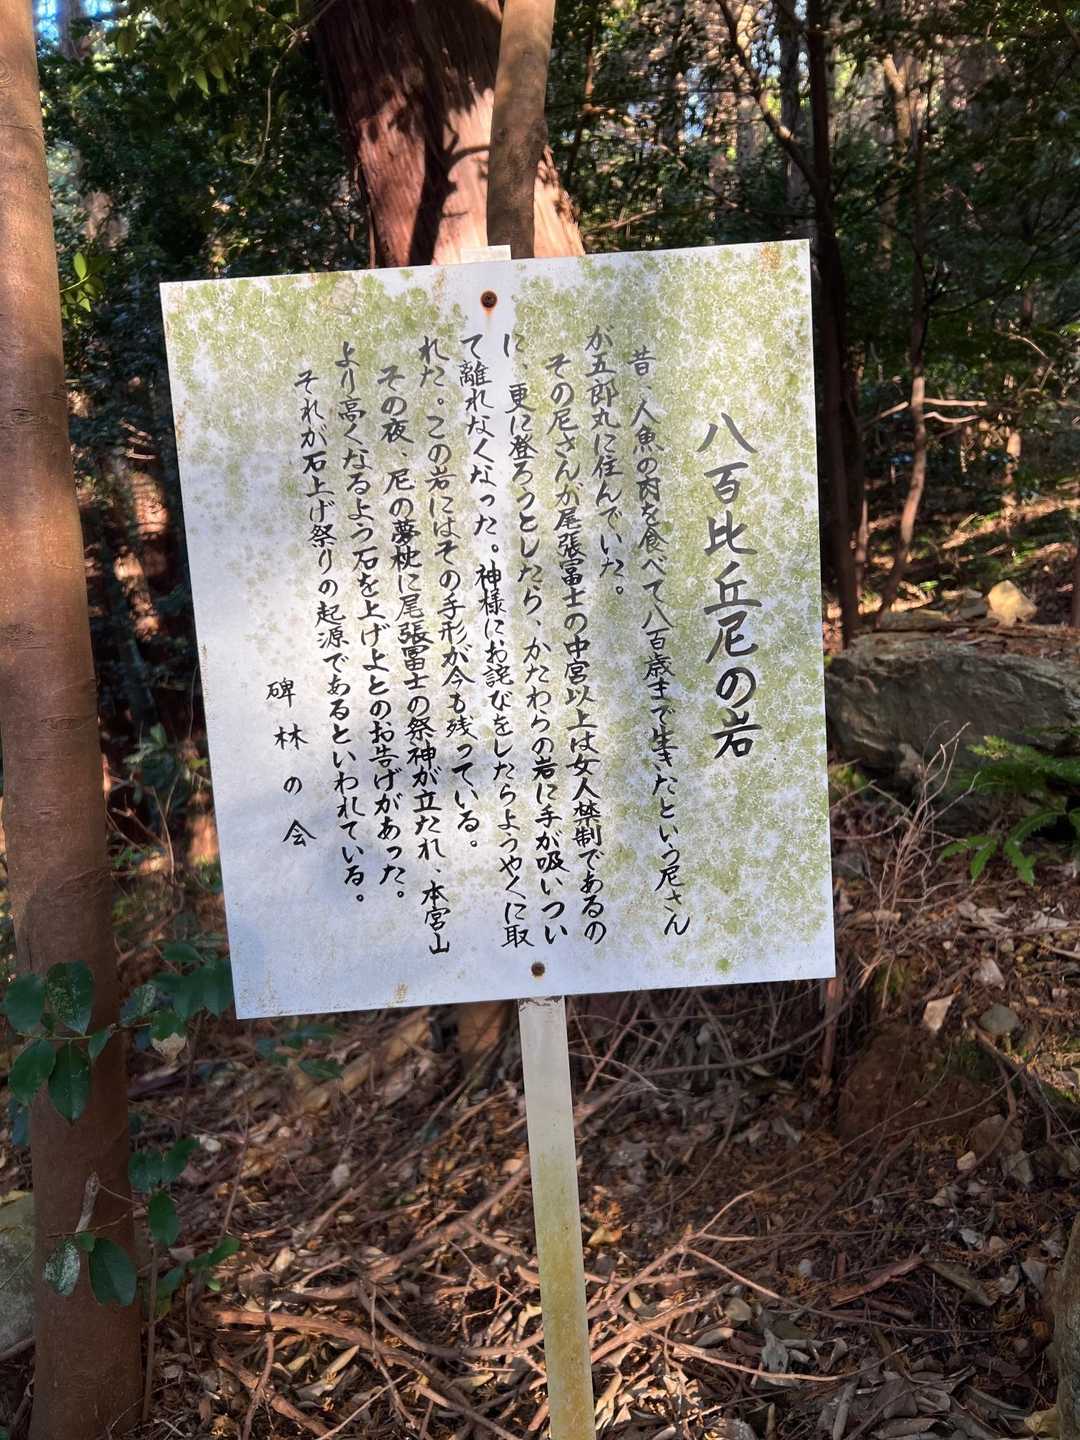 八百比丘尼の岩
昔、人魚の肉を食べて八百歳まで生きたという尼さん
が五郎丸に住んでいた。
その尼さんが尾張富士の中宮以上は女人禁制であるの
に、更に登ろうとしたら、かたわらの岩に手が吸いつい
て離れなくなった。神様にお詫びをしたらようやくに取
れた。この岩にはその手形が今も残っている。
その夜、尼の夢枕に尾張冨士の祭神が立たれ、本宮山
より高くなるよう石を上げ上とのお告げがあった。
それが石上げ祭りの起源であるといわれている。
碑林の会